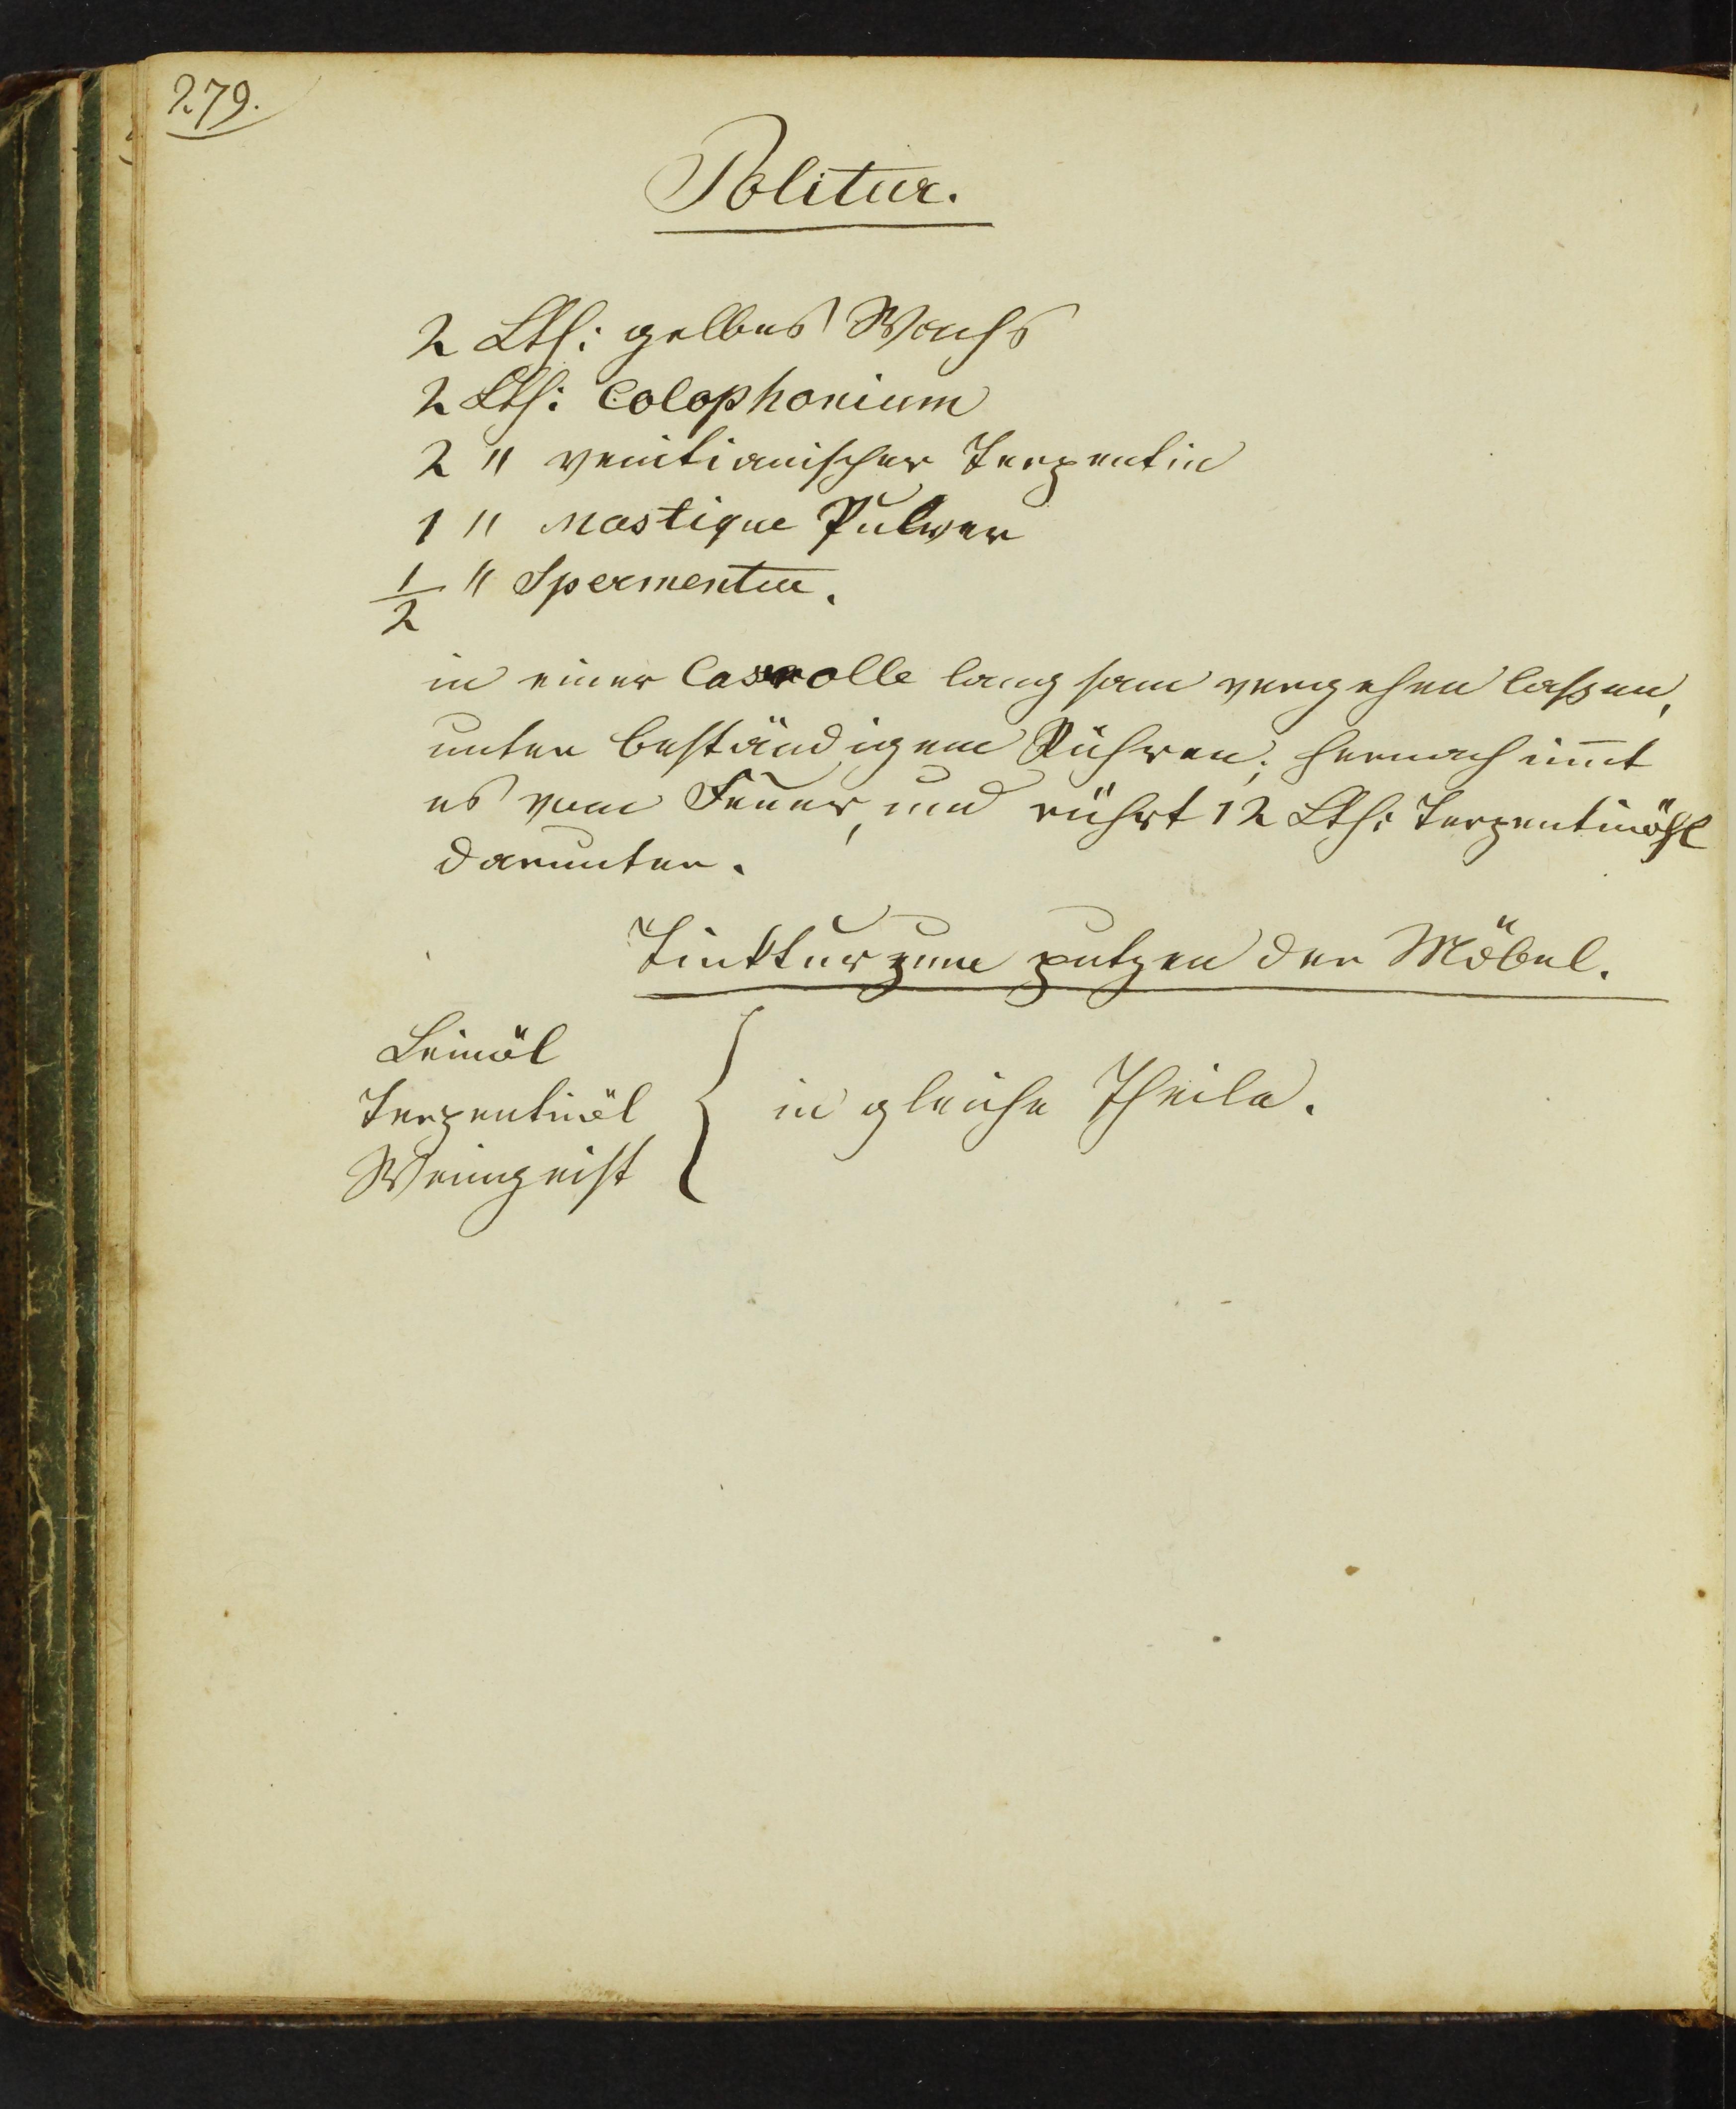 279.
Politur.
2 Lth: gelbes Wachs
2 Lth: Colophonium
2 " venitianischer Terpentin
1 " Mastique Pulver
1/2 " Spermentur.
in einer Casserolle langsam vergehen laßen,
unter beständigem Rühren; hernach nim̅t
es vom Feuer, und rührt 12 Lth: Terpentinöhl
darunter.
Tinktur zum putzen der Möbel.
Leinöl
Terpentinöl } in gleiche Theile.
Weingeist